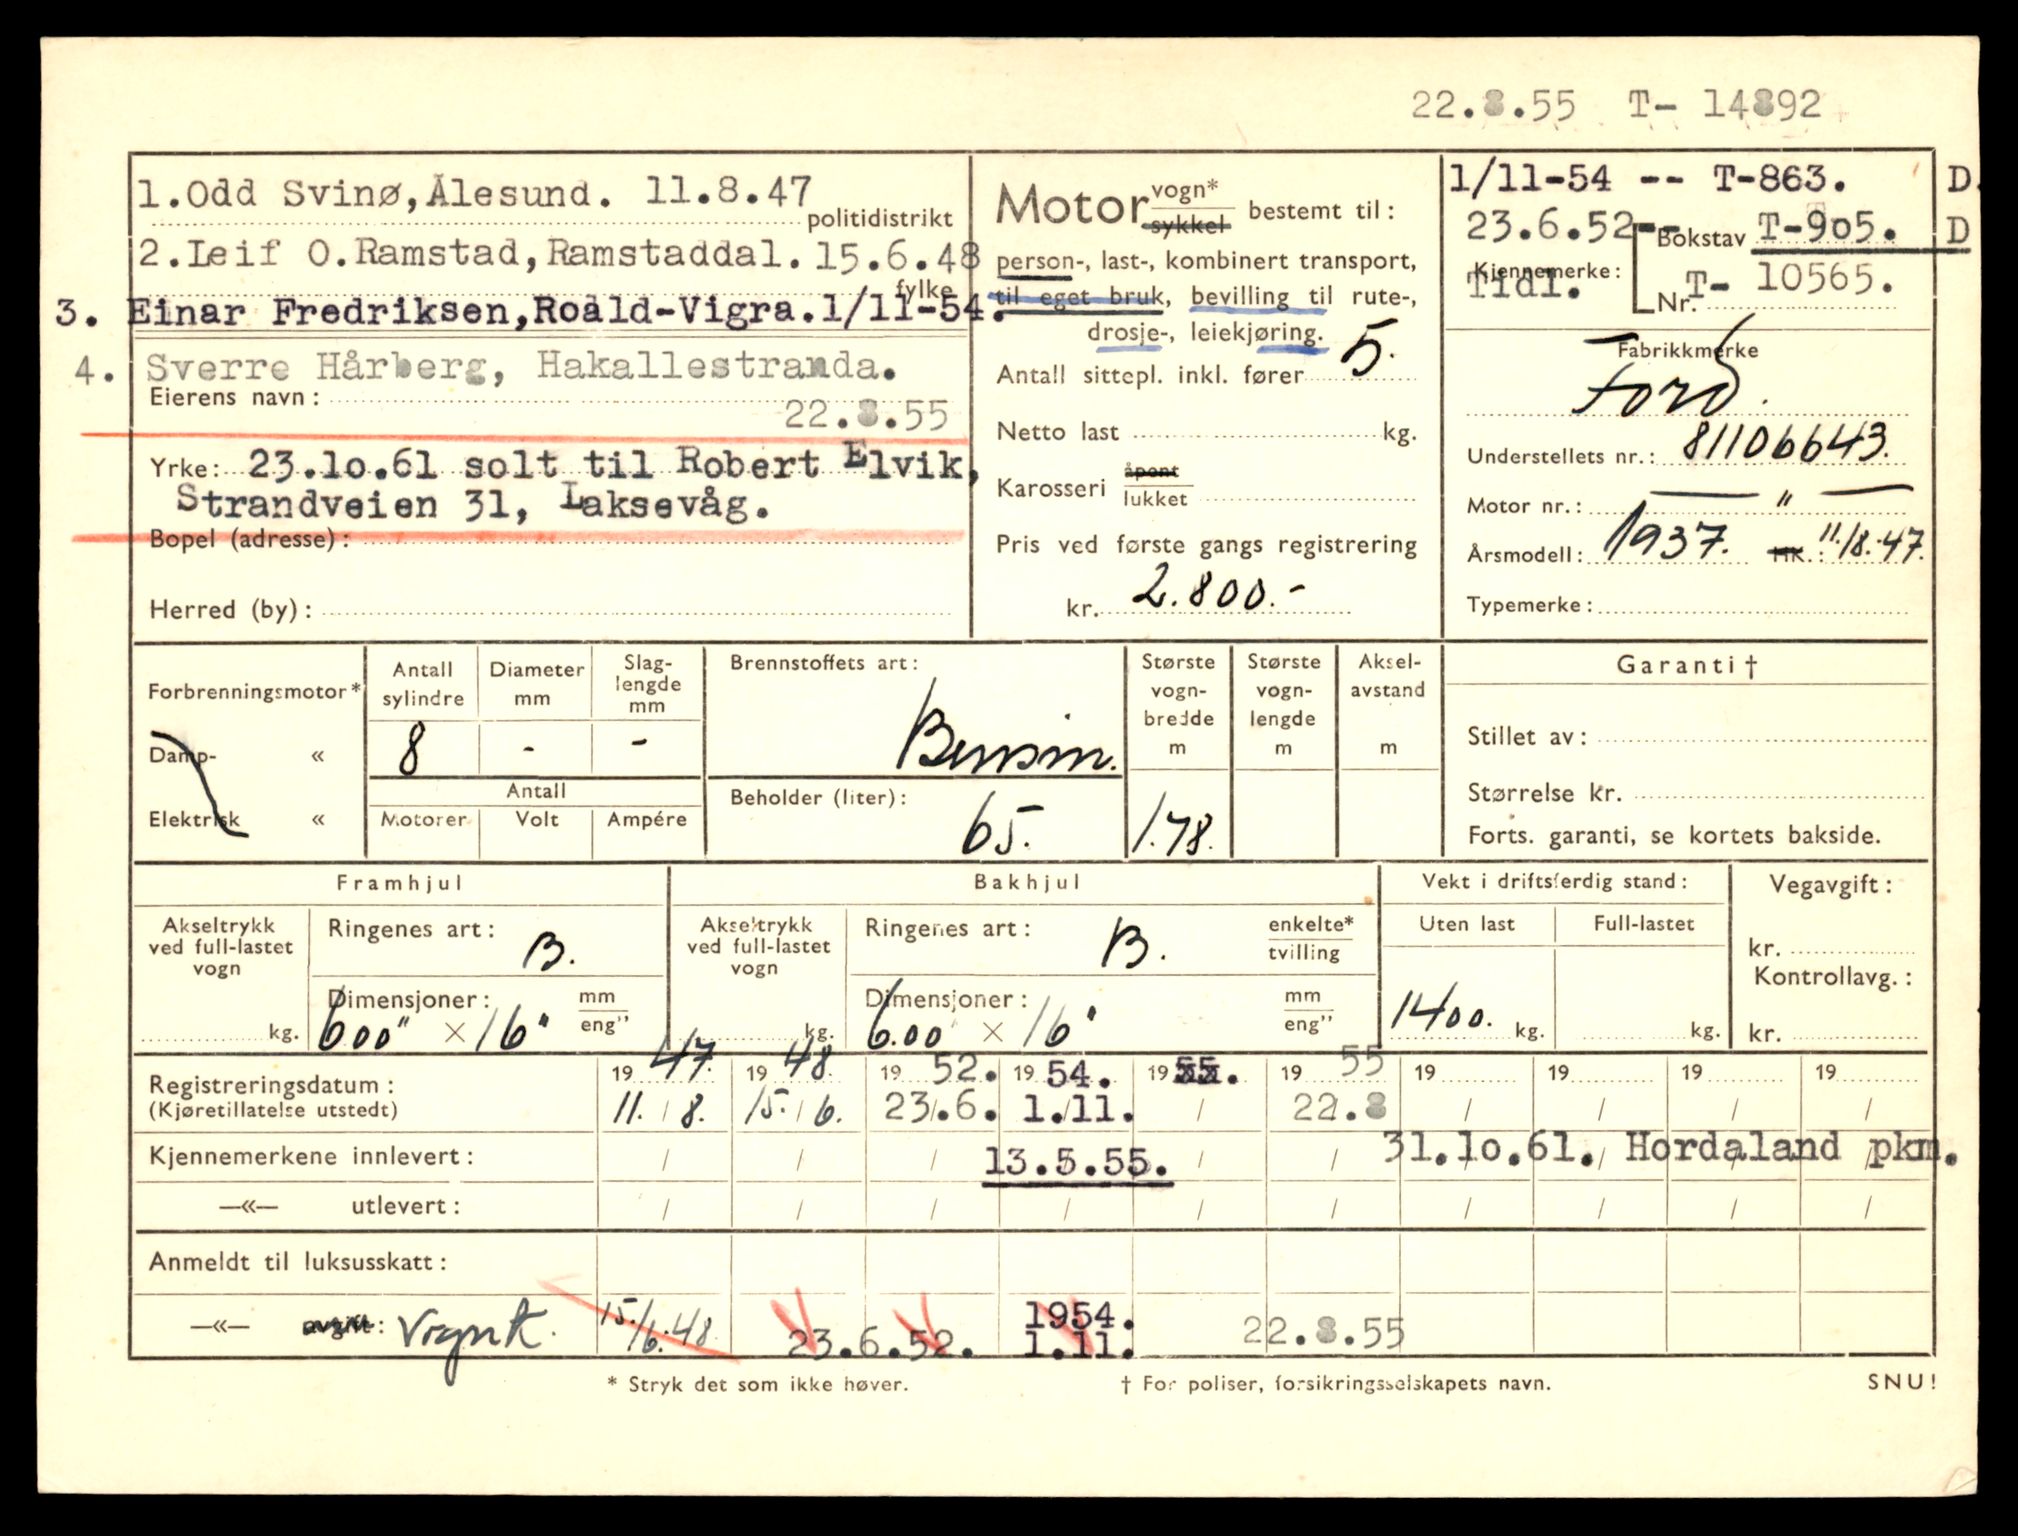 22.8.55 T- 14892
1.Odd Svinø,Ålesund. 11.8.47
politidistrikt
2.Leif O.Ramstad,Ramstaddal. 15.6.48
fylke
3. Einar Fredriksen,Roald-Vigra.1/11-54.
4. Sverre Hårberg, Hakallestranda.
Eierens navn:
22.8.55
Yrke: 23.10.61 solt til Robert Elvik,
Strandveien 31, Laksevåg.
Bopel (adresse):
Herred (by):
Motor vogn* sykkel bestemt til:
person-, last-, kombinert transport,
til eget bruk, bevilling til rute-,
drosje-, leiekjøring.
Antall sittepl. inkl. fører 5.
Netto last kg.
Karosseri åpent lukket
Pris ved første gangs registrering
kr. 2.800.-
1/11-54 -- T-863. D.
23.6.52-- Bokstav T-9o5. D
Kjennemerke:
Tidl. Nr. T- 10565.
Fabrikkmerke
Ford.
Understellets nr.: 81106643.
Motor nr.: — " —
Årsmodell: 1937. HK.: 11/8.-47.
Typemerke:
Forbrenningsmotor*
Damp- «
Elektrisk «
Antall sylindre
8
Diameter mm
-
Slag-lengde mm
-
Antall
Motorer Volt Ampére
Brennstoffets art:
Bensin.
Beholder (liter):
65.
Største vogn-bredde m
1.78.
Største vogn-lengde m
Aksel-avstand m
Garanti†
Stillet av:
Størrelse kr.
Forts. garanti, se kortets bakside.
Framhjul
Akseltrykk ved full-lastet vogn
kg.
Ringenes art: B.
Dimensjoner: mm eng”
600" × 16"
Bakhjul
Akseltrykk ved full-lastet vogn
kg.
Ringenes art: B. enkelte* tvilling
Dimensjoner: mm eng”
6.00" × 16"
Vekt i driftsferdig stand:
Uten last Full-lastet
1400. kg. kg.
Vegavgift:
kr.
Kontrollavg.:
kr.
Registreringsdatum: 19 47. 19 48 19 52. 19 54. 19 55. 19 55 19 19 19 19
(Kjøretillatelse utstedt) 11. / 8. 15. / 6. 23/.6. 1./11. / 22.8 / / / /
Kjennemerkene innlevert: / / / 13.5.55. / / 31.10.61. Hordaland pkm.
—«— utlevert: / / / / / / / / / /
Anmeldt til luksusskatt:
—«— avgift: Vognk. 15./6.48. 23.6.52. 1954. 1.11. 22.8.55
* Stryk det som ikke høver.
† For poliser, forsikringsselskapets navn.
SNU!